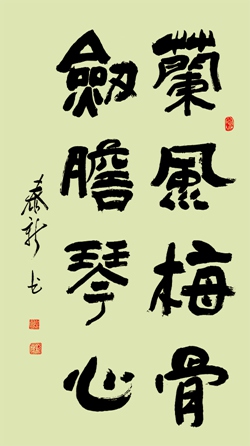 蘭風梅骨
劍膽琴心
泰新书